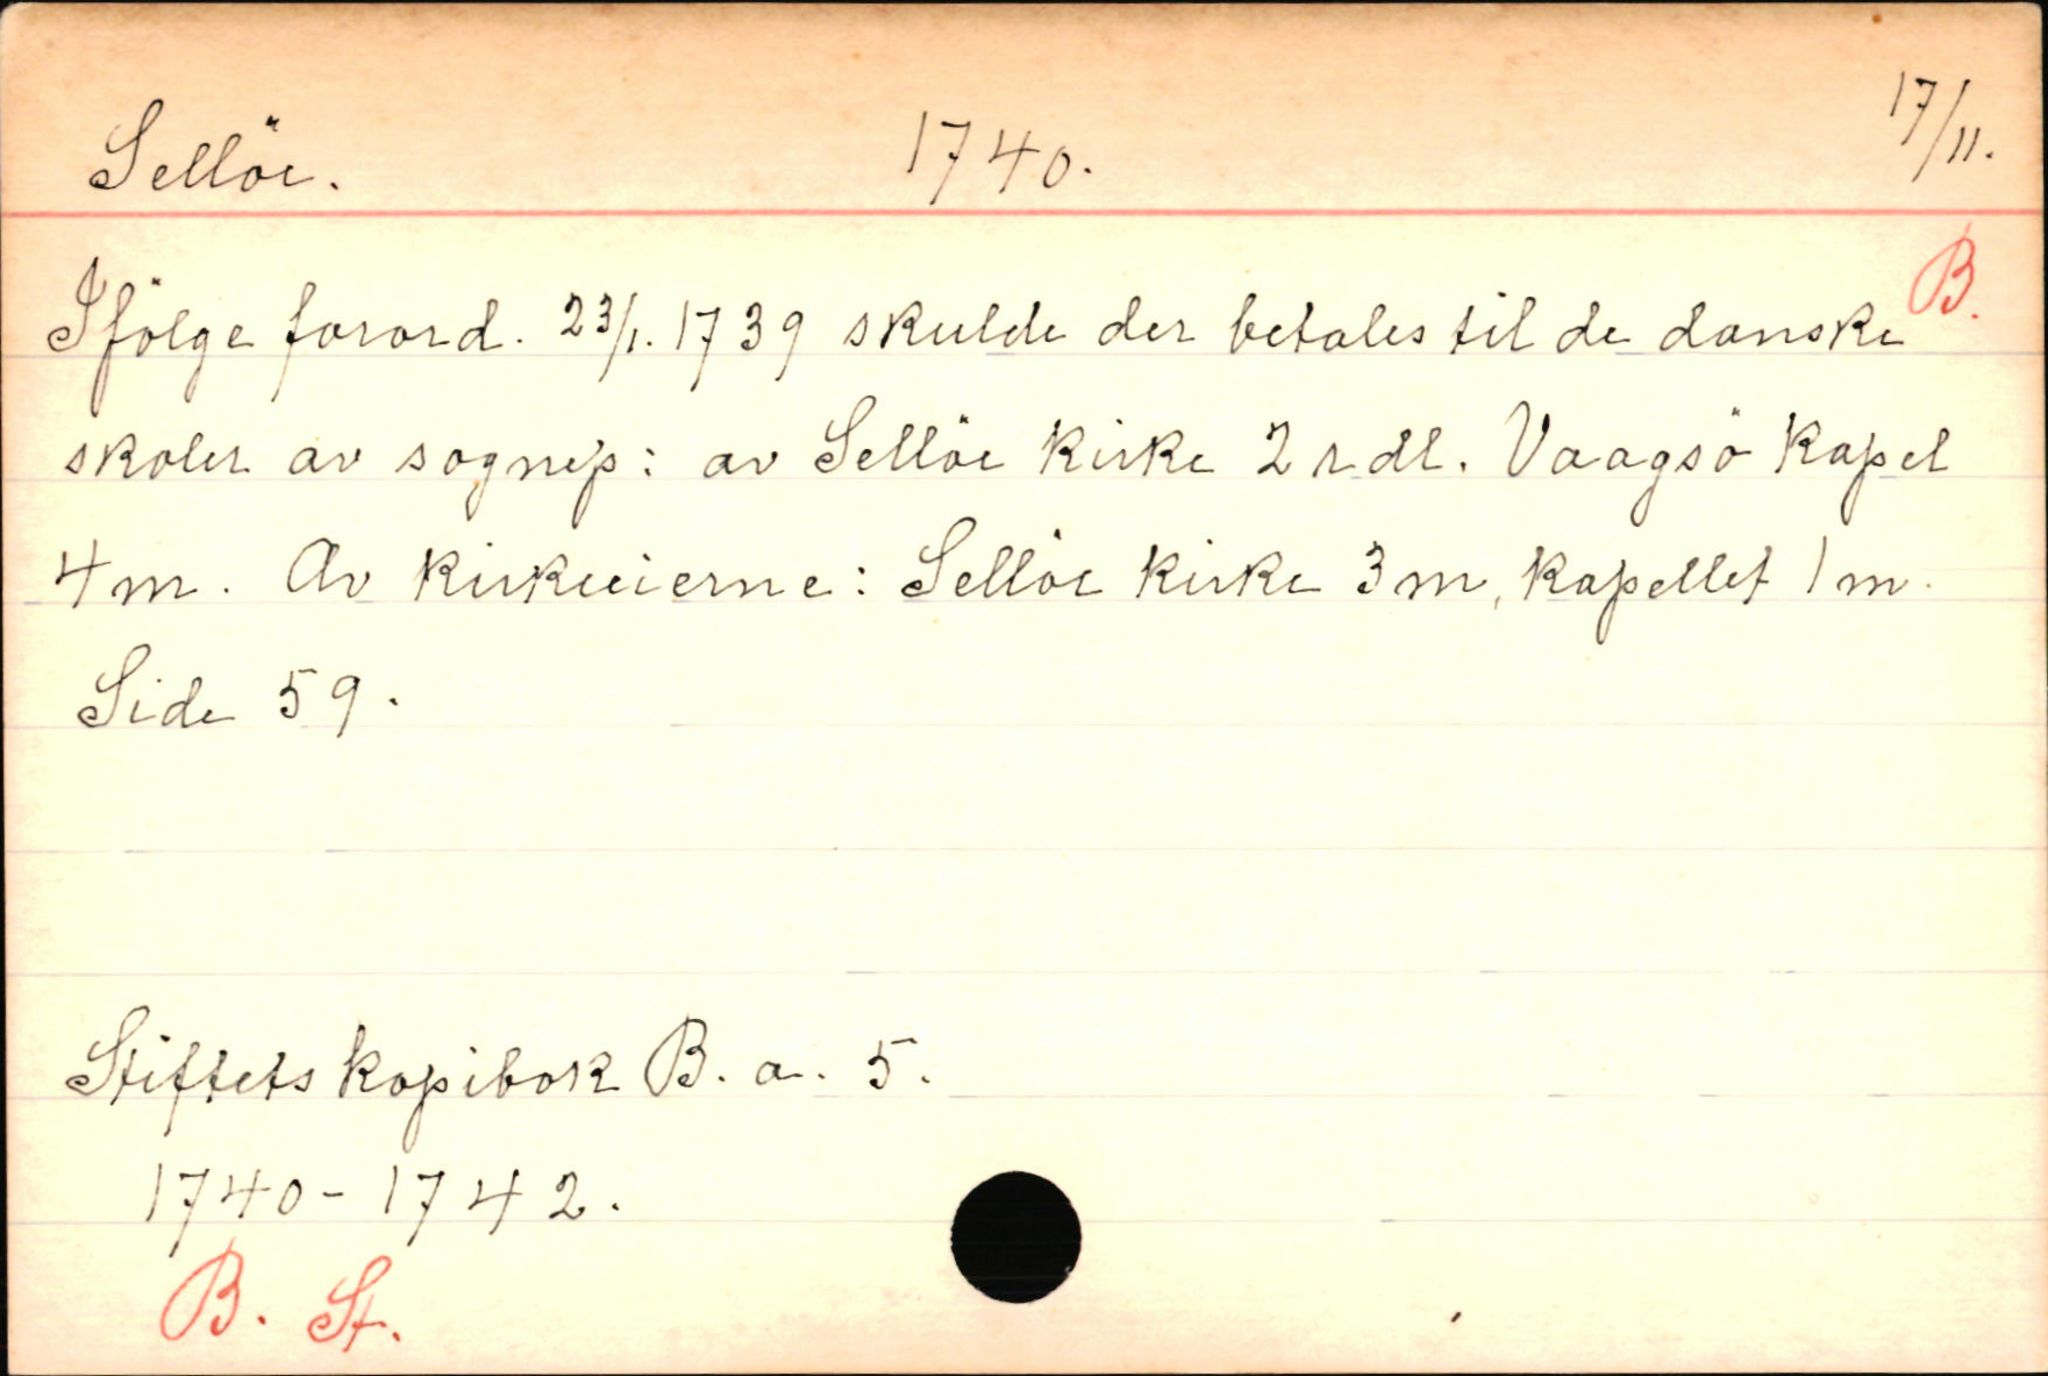 Sellöe. 1740. 17/11.
B.
Ifölge forord. 23/1. 1739 skulde der betales til de danske
skoler av sognep: av Sellöe kirke 2 rdl. Vaagsö kapel
4 m. Av kirkeeierne: Sellöe kirke 3 m, kapellet 1 m.
Side 59.
Stiftets kopibok B. a. 5.
1740-1742.
B. St.